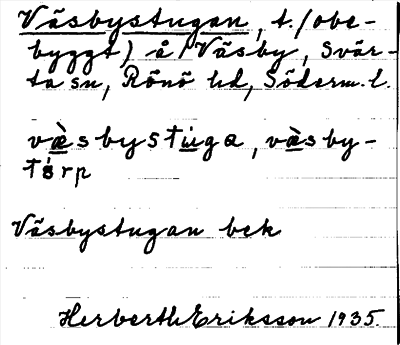 Väsbystugan, t. (obe-
byggt) å Väsby, Svär-
ta sn, Rönö hd, Söderm. l.
væ̀sbystu̇ga, væ̀sby-
tȯrp
Väsbystugan bek
Herberth Eriksson 1935.